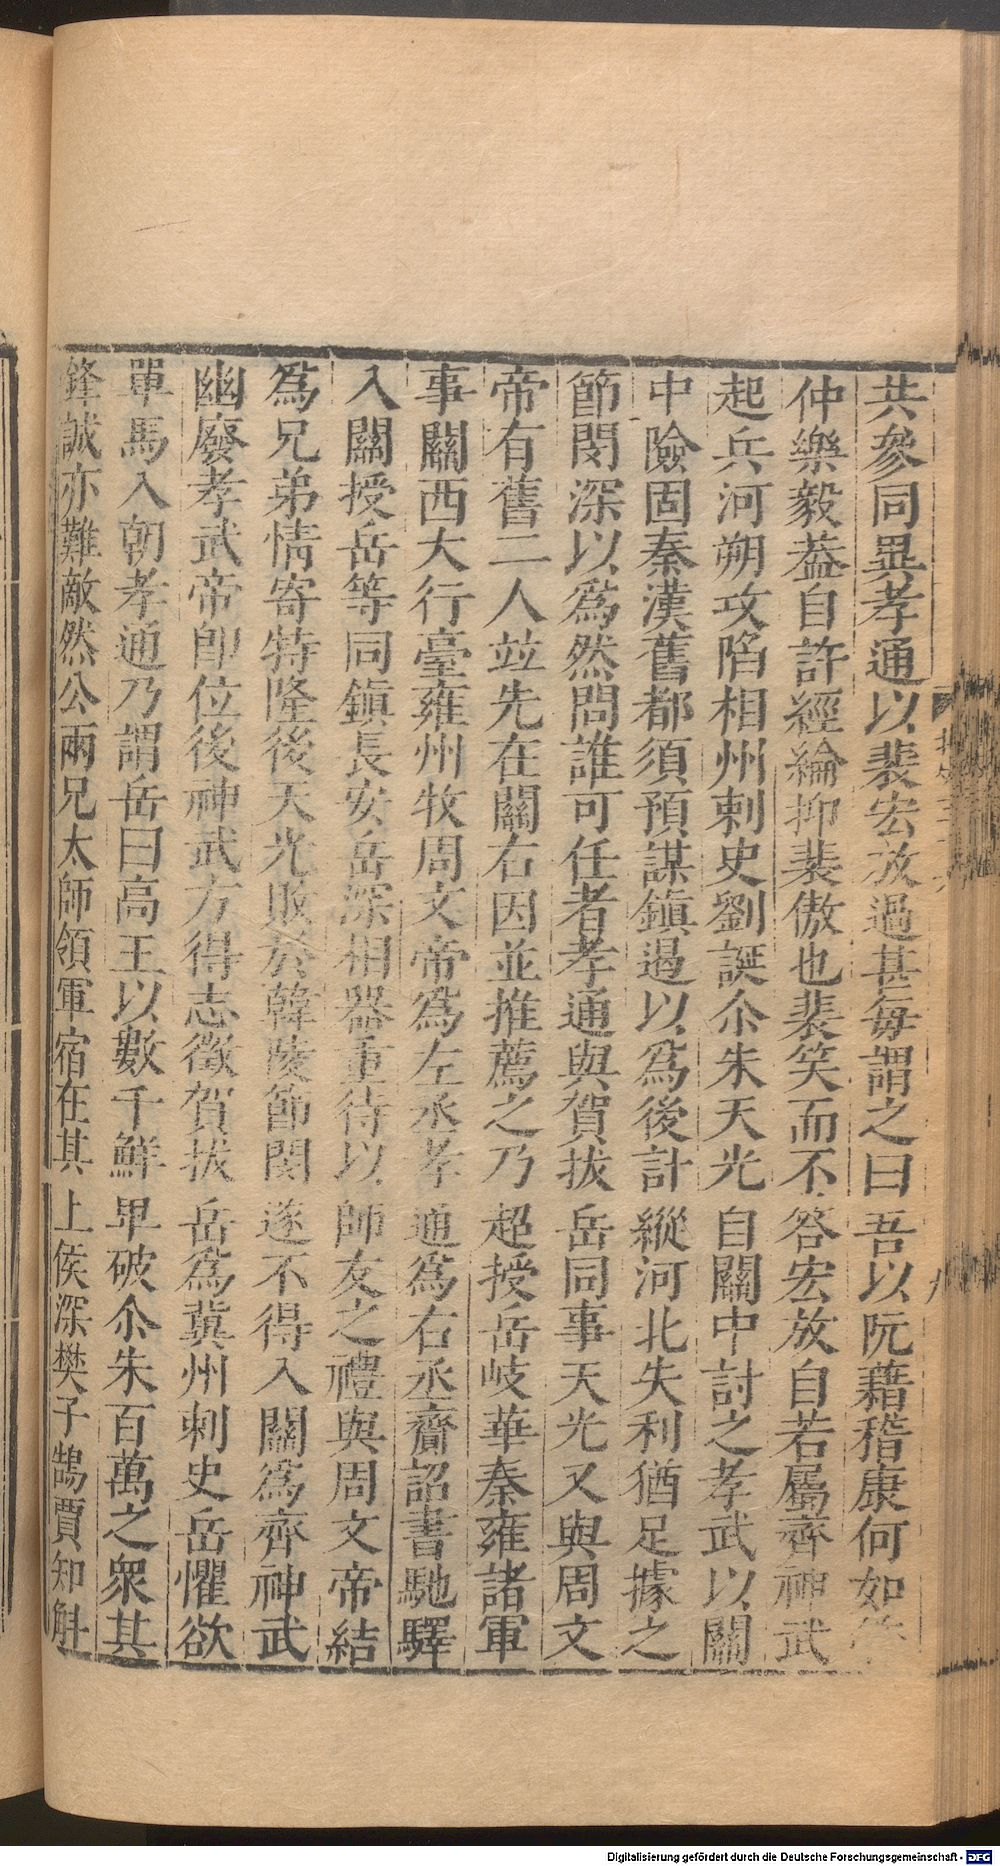 共參同異孝通以裴宏放過甚每謂之曰吾以阮藉嵇康何如
仲樂毅葢自許經綸抑裴傲也裴笑而不答宏放自若屬齊神武
起兵河朔攻陷相州刺史劉誕尒朱天光自關中討之孝武以關
中險固秦漢舊都須預謀鎮遏以爲後計縱河北失利猶足據之
節閔深以爲然問誰可任者孝通與賀拔岳同事天光又與周文
帝有舊二人竝先在關右因並推薦之乃超授岳岐華秦雍諸軍
事關西大行臺雍州牧周文帝爲左丞孝通爲右丞齎詔書馳驛
入關授岳等同鎮長安岳深相器重待以師友之禮與周文帝結
爲兄弟情寄特隆後天光敗於韓陵節閔遂不得入關爲齊神武
幽廢孝武帝卽位後神武方得志徵賀拔岳爲冀州刺史岳懼欲
單馬入朝孝通乃謂岳曰高王以數千鮮卑破尒朱百萬之衆其
鋒誠亦難敵然公兩兄太師領軍宿在其上侯深樊子鵠賈知斛
Digitalisierung gefördert durch die Deutsche Forschungsgemeinschaft - DFG